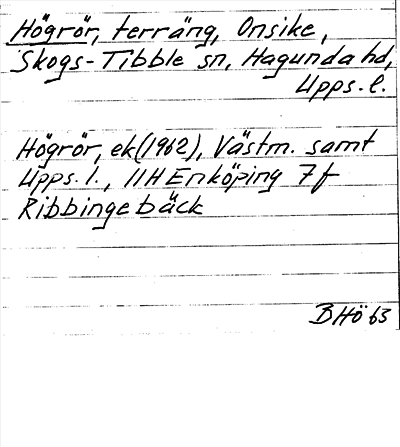 Högrör, terräng, Onsike,
Skogs-Tibble sn, Hagunda hd,
Upps. l.
Högrör, ek (1962), Västm. samt
Upps. l., 11H Enköping 7f
Ribbingebäck
BHö 63